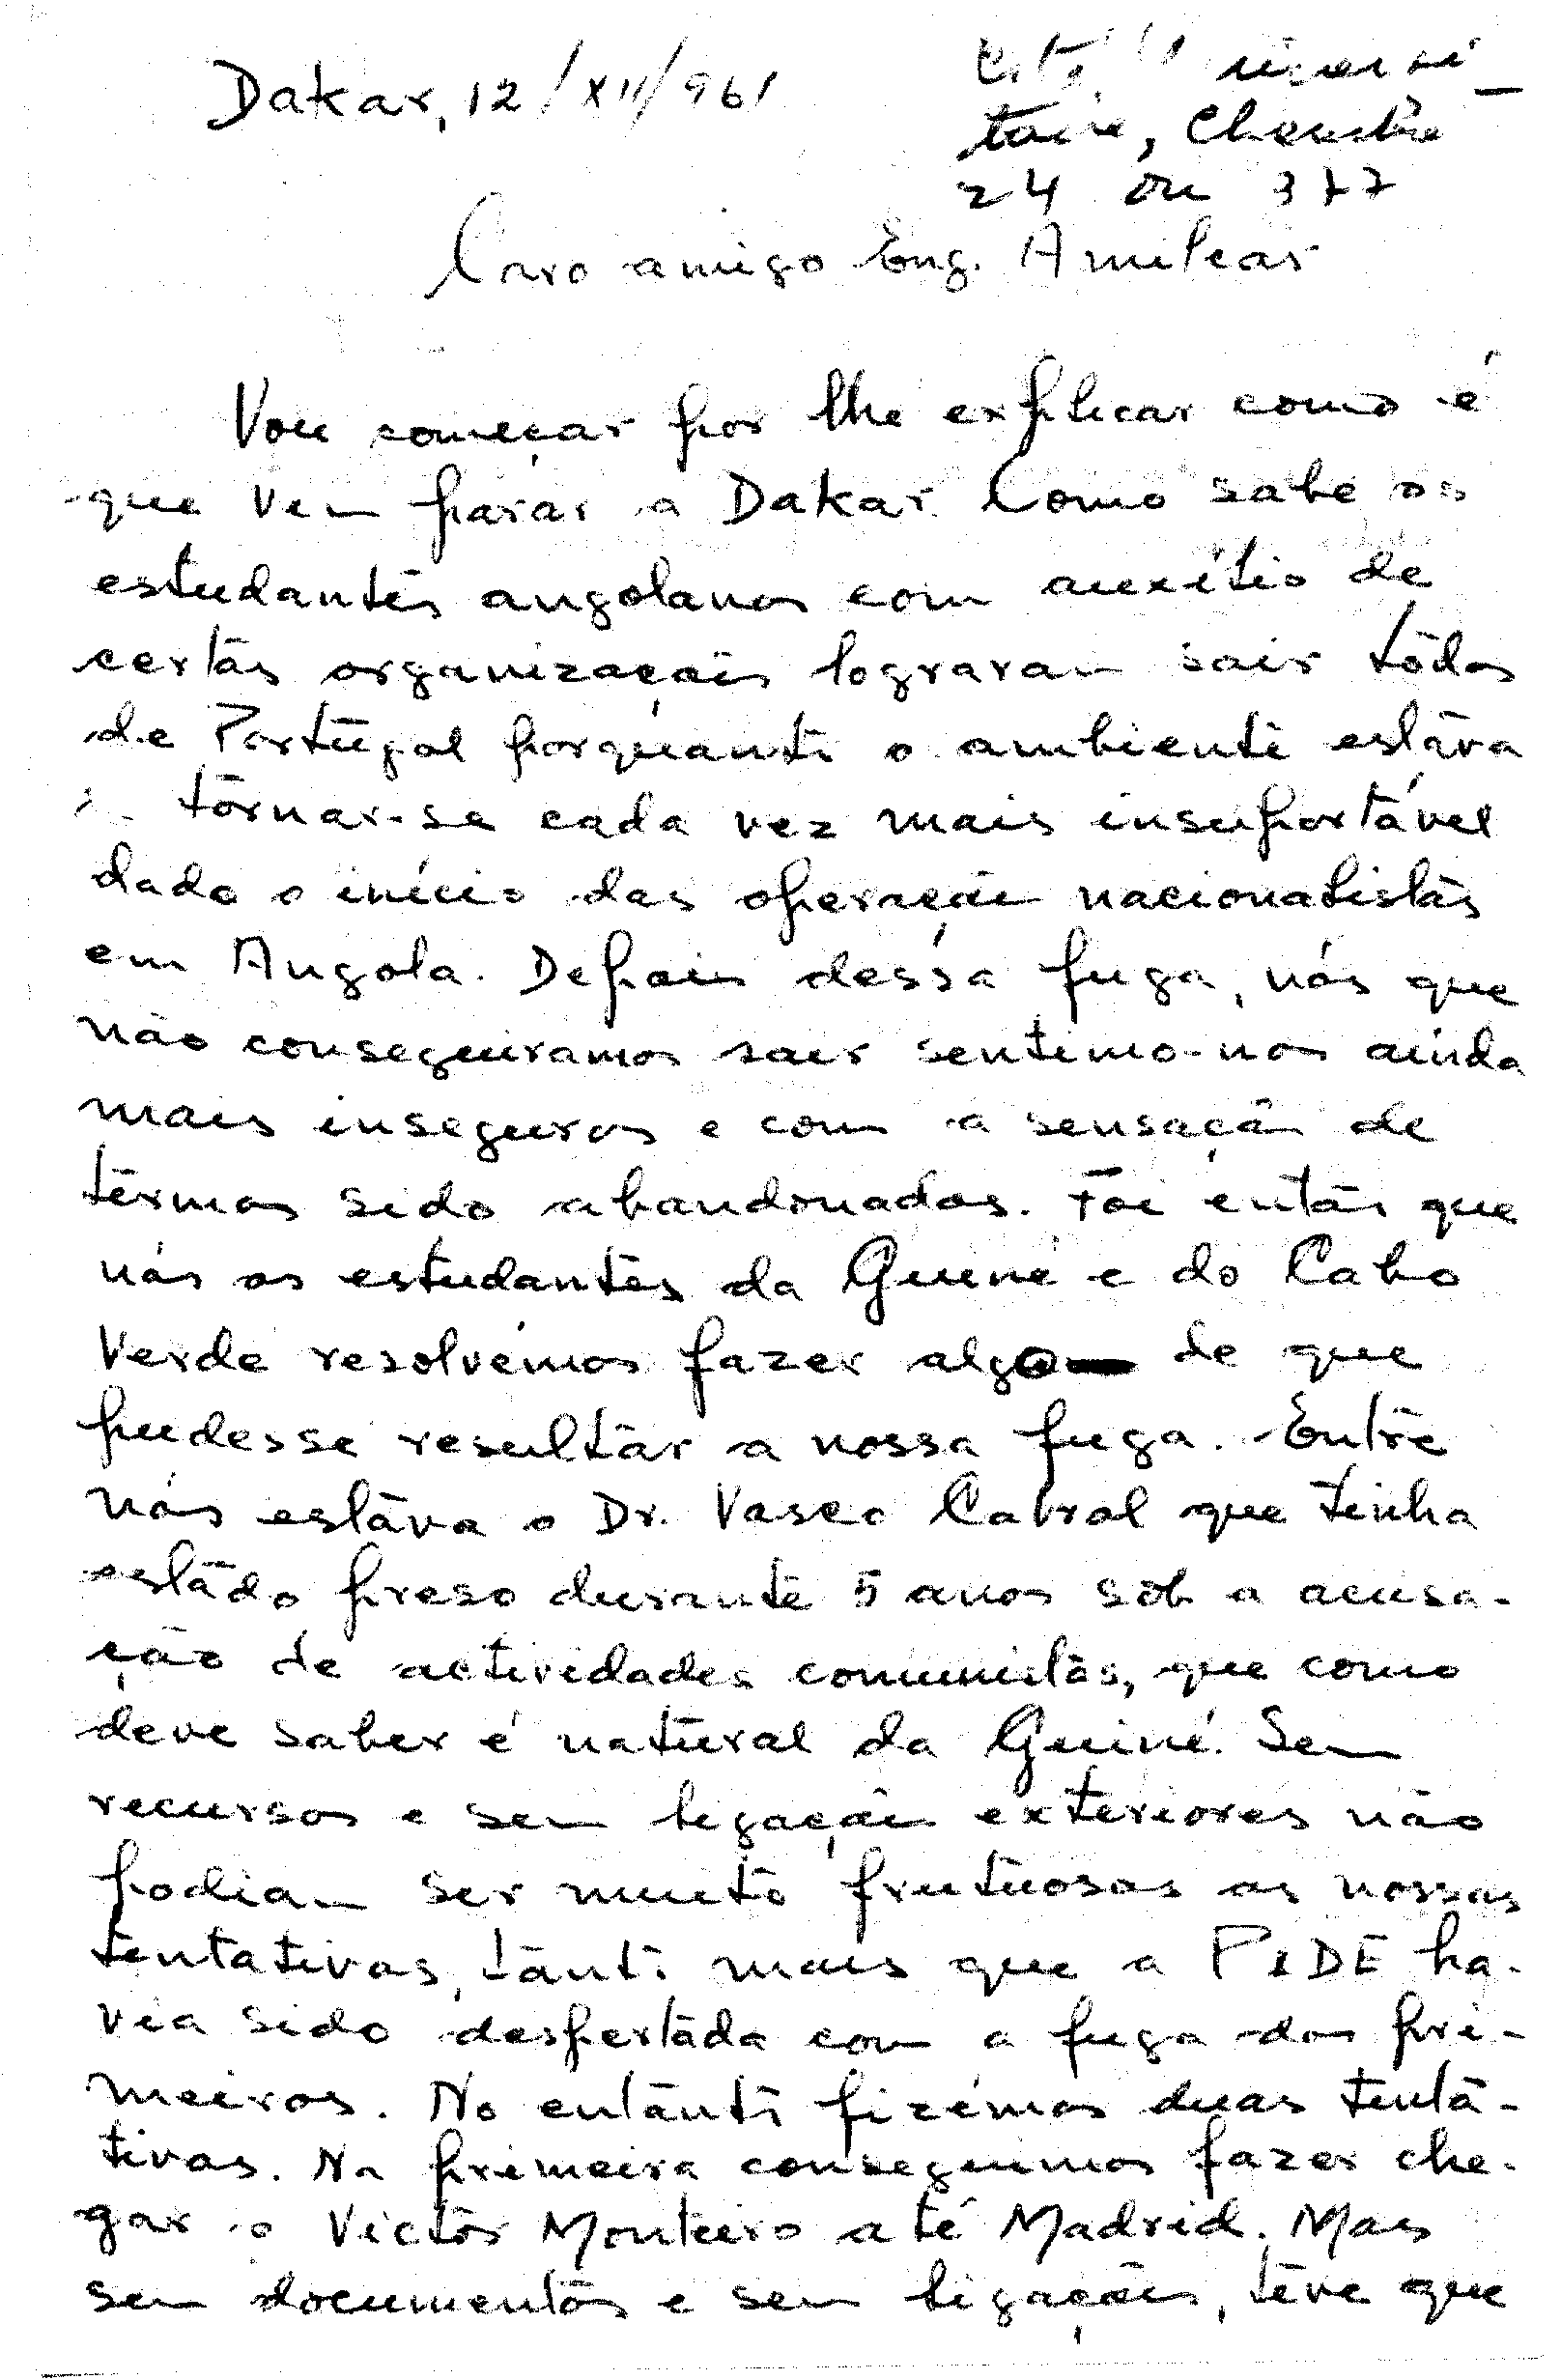 Dakar, 12/XII/961
Cité Universi-
taire, Chambre
24 ou 377
Caro amigo Eng. Amilcar
Vou começar por lhe explicar como é
que vem parar a Dakar. Como sabe os
estudantes angolanos com auxílio de
certas organizações lograram sair todos
de Portugal porquanto o ambiente estava
a tornar-se cada vez mais insuportável
dado o início das operações nacionalistas
em Angola. Depois dessa fuga, nós que
não conseguiramos sair sentimo-nos ainda
mais inseguros e com a sensação de
termos sido abandonados. Foi então que
nós os estudantes da Guiné e do Cabo
Verde resolvémos fazer algo de que
pudesse resultar a nossa fuga. Entre
nós estava o Dr. Vasco Cabral que tinha
estado preso durante 5 anos sob a acusa-
ção de actividades comunistas, que como
deve saber é natural da Guiné. Sem
recursos e sem ligações exteriores não
podiam ser muito frutuosas as nossas
tentativas, tanto mais que a PIDE ha-
via sido despertada com a fuga dos pri-
meiros. No entanto fizémos duas tenta-
tivas. Na primeira conseguimos fazer che-
gar o Victor Monteiro até Madrid. Mas
sem documentos e sem ligações, teve que